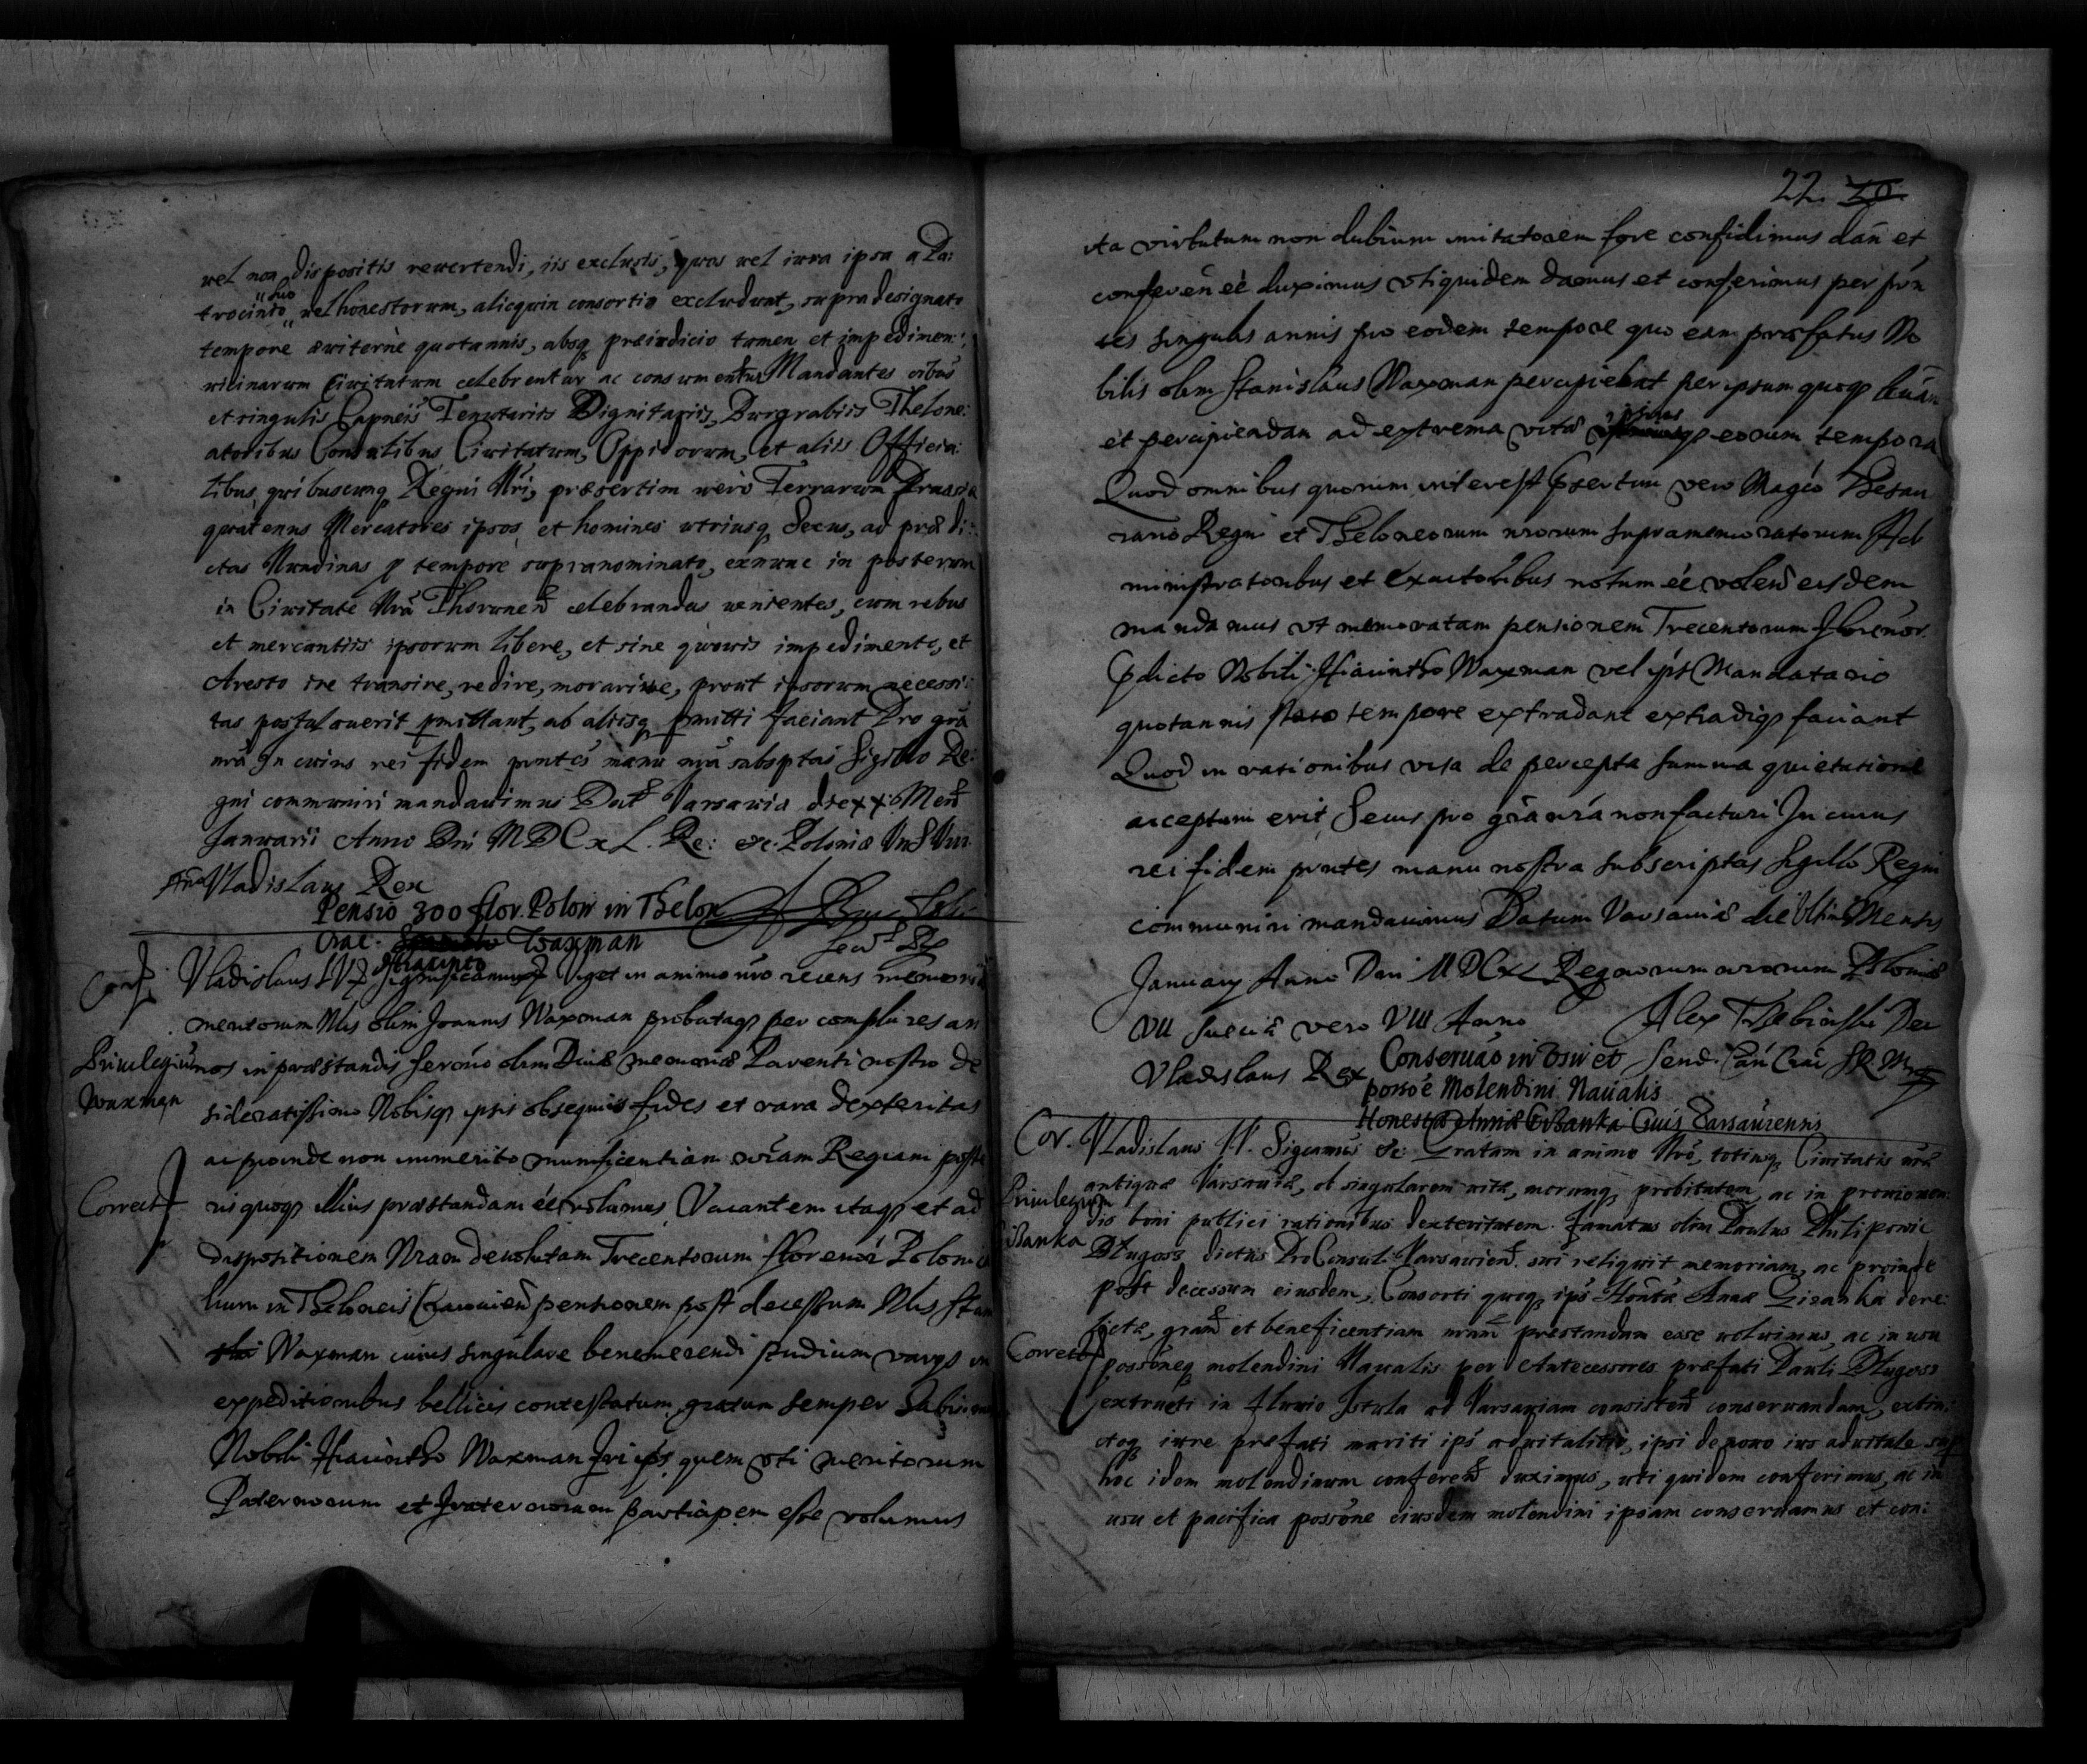 vel non dispositis revertendi, iis exclusis, quos vel iura ipsa a Pa:
trocinio suo vel honestorum, alicquin consortio excludunt, supra designato
tempore aviternè quotannis, absq præiudicio tamen et impedimen:
vicinarum Civitatum celebrentur ac consumentur Mandantes oibus
et singulis Capneis Tenutariis Dignitariis, Burgrabiis Thelone:
atoribus Consulibus Civitatum, Oppidorum, et aliis Officia:
libus quibuscunq Regni Nri, præsertim verò Terrarum Prussiæ
quatenus Mercatores ipsos, et homines utriusq Sexus, ad præ di:
ctas Nundinas p tempore supranominato, exnunc in posterum
in Civitate Nra Thorunen celebrandas venientes, cum rebus
et mercantiis ipsorum libere, et sine quovis impedimento, et
Aresto ire transire, redire, morarive, prout ipsorum necessi:
tas postulaverit pmittant, ab aliisq pmitti faciant Pro gra
nra In cuius rei fidem pntes manu nra subsptas Sigillo Re:
gni communiri mandavimus Dat Varsaviæ die xx Men
Januarii Anno Dni MDCxL. Re: &c. Poloniæ
Vladislaus Rex
Pensio 300 flor. Polon in Thelon
Crac. Hyacinto Waxman
Vladislaus IV Significamus Viget in animo nro recens memoria
meritorum Nlis olim Joannis Waxman probataq per complures an
Privilegium
nos in præstandis Sereno olim Divæ memoriæ Parenti nostro de
Waxman
sideratissimo Nobisq ipsis obsequiis fides et rara dexteritas
ac proinde non immerito munificentiam nram Regiam poste
Correct
ris quoq illius præstandam eè volumus Vacantem itaq et ad
dispositionem Nram devolutam Trecentorum florenor Poloni
lium in Theloneis Cracovien pensionem post decessum Nlis Stani
slai Waxman cuius singulare benemerendi studium varys in
expeditionibus bellicis contestatum gratum semper habuimus
Nobili Hiacintho Waxman fri ips quem uti meritorum
Paternorum et fraternorum participem esse volumus
22 20
ita virtutum non dubium imitatorem fore confidimus dan et
conferen eè duximus utiquidem damus et conferimus per prn
tes singulis annis pro eodem tempore quo eam præfatus No
bilis olim Stanislaus Waxman percipiebat per ipsum quoq levan
et percipiendam ad extrema vitæ ipsius eorum tempora
Quod omnibus quorum interest psertim vero Magco Thesau
rario Regni et Theloneorum nrorum supramemoratorum Ad
ministratoribus et exactoribus notum eè volen eisdem
mandamus ut memoratam pensionem Trecentorum florenor
pdicto Nobili Hiacintho Waxman vel ips Mandatario
quotannis stato tempore extradant extradiq faciant
Quod in rationibus visa de percepta summa quietatione
acceptum erit Secus pro gra nra non facturi In cuius
rei fidem prntes manu nostra subscriptas sigillo Regni
communiri mandavimus Datum Varsaviæ die Mensis
January Anno Dni MDCxL Regnorum nrorum Poloniæ
VII Sueciæ vero VIII Anno Alex Trzebinski
Vladislaus Rex
Conservao in usu et
posse Molendini Navalis
Honestæ Annæ Gizanka Civis Varsaviensis
Cor.
Vladislaus IV. Sigcamus &c: Gratam in animo Nro, totiusq Civitatis nræ
Privilegium
antiquæ Varsaviæ, ob singularem vitæ, morumq probitatem, ac in promoven:
Gizanka
dis boni publici rationibus dexteritatem. Famatus olim Paulus Philipowic
Długosz dictus ProConsul Varsavien. sui reliquit memoriam, ac proinde
post decessum eiusdem, Consorti quoq ips Honta Annæ Gizanka dere:
lictæ, gram et beneficentiam nram prestandam esse voluimus, ac in usu
Correct
possoneq molendini Navalis per Antecessores præfati Pauli Długosz
extructi in Fluvio Istula ad Varsaviam consisten conservandam, extin:
ctoq iure prefati mariti ips advitalitio, ipsi denovo ius advitale sup
hoc idem molendinum conferen duximus, uti quidem conferimus, ac in
usu et pacifica possone eiusdem molendini ipsam conservamus et con: